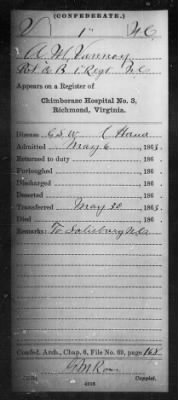 (CONFEDERATE.)
V 1" N.C.
A. M. Vannoy
Pvt Co B. 1" Regt N.C.
Appears on a Register of
Chimborazo Hospital No. 3,
Richmond, Virginia.
Disease G.S.W. (Hand
Admitted May 6, 1863.
Returned to duty, 186 .
Furloughed, 186 .
Discharged, 186 .
Deserted, 186 .
Transferred May 30, 1863.
Died, 186 .
Remarks: To Salisbury N.C.
Confed. Arch., Chap. 6, File No. 69, page 168
G M Ross
Copyist.